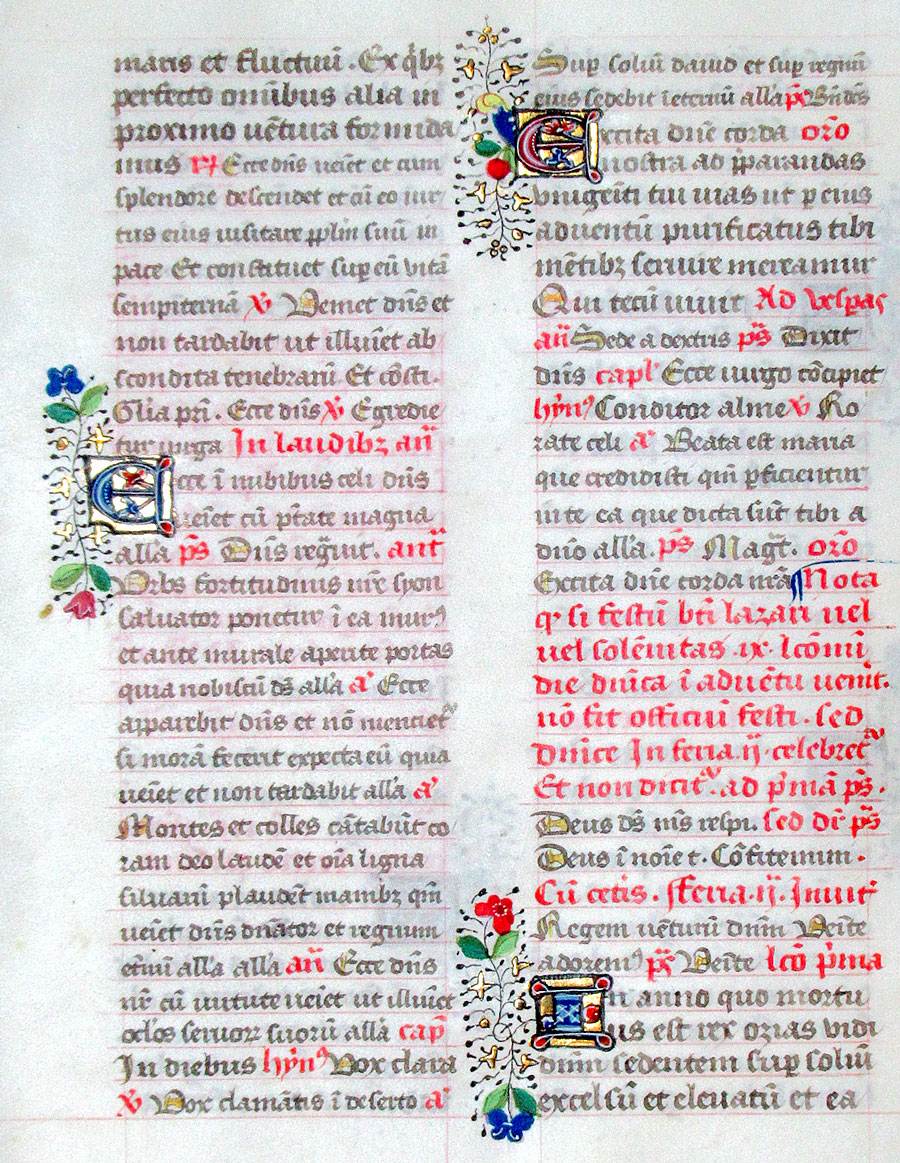 maris et fluctuū . Ex q̇bꝫ
perfecto omībus alia in
proximo uētura formida
mus ꝶ Ecce dn̄s ueiet et cum
splendore descendet et cū eo uir
tus eius uisitare pplm suū in
pace Et constituet suꝑ eū vitā
sempiternā ℣ Veniet dn̄s et
non tardabit ut illuiet ab
scondita tenebrarū . Et cōsti .
Glīa pri . Ecce dn̄s ℣ Egredie
tur uirga In laudibꝫ añ
Ecce ī nubibus celi dn̄s
ueiet cū ptāte magna
alla ps Dn̄s regūit . ant
Urbs fortitudinis nr̄e syon
saluator ponetur ī ea murꝰ
et ante murale aperite portas
quia nobiscū ds̄ alla aᵃ Ecce
apparebit dn̄s et nō mencietᷣ
si morā fecerit expecta eū quia
ueiet et non tardabit alla aᵃ
Montes et colles cātabūt co
ram deo laudē et oīa ligna
siluarū plaudēt manibꝫ qm̄
ueiet dn̄s dn̄ator et regnum
et̄nū alla alla añ Ecce dn̄s
nr̄ cū uirtute ueiet ut illuiet
oclos seruoꝝ suorū alla cap
In diebus hynꝰ Vox clara
℣ Vox clamātis ī deserto aᵃ
Suꝑ soliū dauid et suꝑ regnū
eius sedebit ī eternū alla ps Bn̄dc̄s
Excita dn̄e corda oro
nostra ad p̄parandas
vnigeniti tui uias ut p eius
aduentū purificatis tibi
mētibꝫ seruire mereamur
Qui tecū uiuit Ad vesꝑas
añ Sede a dextris ps Dixit
dn̄s capl Ecce uirgo cōcipiet
hynꝰ Conditor alme ℣ Ro
rate celi aᵃ Beata est maria
que credidisti qm̄ ꝑficientur
in te ea que dicta sūt tibi a
dn̄o alla . ps Magt̄ . oro
Excita dn̄e corda nr̄a Nota
qꝫ si festū bt̄i lazari uel
uel solēnitas .ix. lcōnū
die dn̄ica ī aduētu uenit .
nō fit officiū festi . sed
dn̄ice In feria .ij. celebretᷣ
Et non dicitᷣ . ad pͥmā ps .
Deus ds̄ ms respi . sed dr̄ ps
Deus ī noīe t . Cōfitemini .
Cū cetis . fferia .ij. Inuit
Regem uēturū dn̄m Veite
adoremꝰ ps Veīte lcō pͥma
In anno quo mortu
us est rex ozias vidi
dn̄m sedentem suꝑ soliū
excelsū et eleuatū et ea